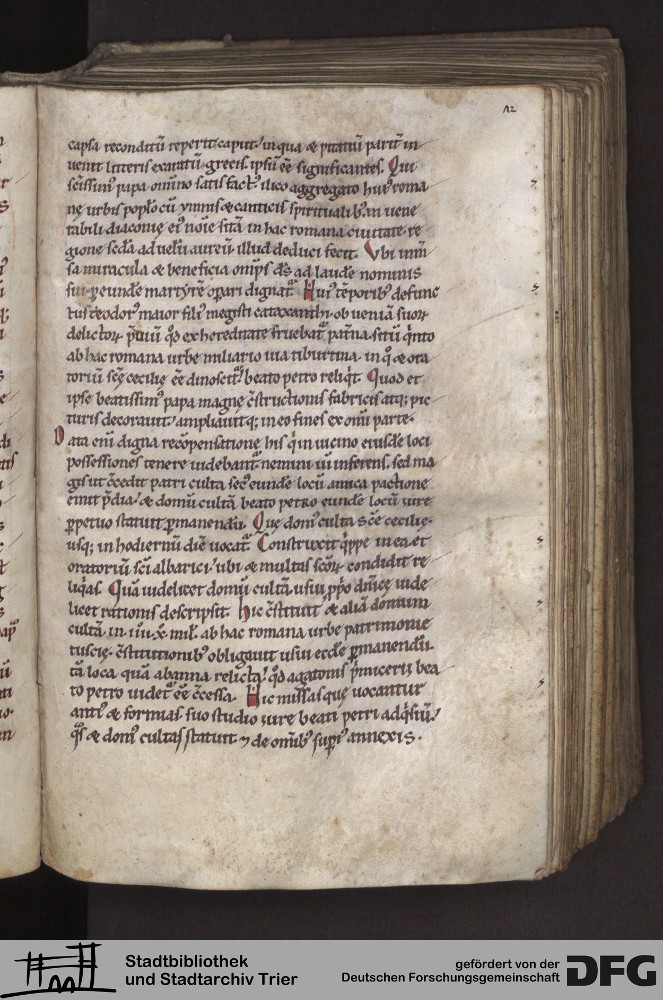 12
capsa reconditū reperit caput / in qua & pitatiū parit̄ in
uenit litteris exaratū grecis. ipsiū eē significantes. Qui
sc̄issim' papa omīno satisfact' ilico aggregato hui' roma
nę urbis pop̄lo cū ymnis & canticis spiritualib; in uene
rabili diaconię ei' noīe sitā in hac romana ciuitate re
gione sc̄da ad uelū aureū. illud deduci fecit. Vbi inm̄
sa miracula & beneficia om̄ps d̄s ad laudē nominis
sui p eundē martyrē op̄ari dignat̄. Hui' tēporib; defunc
tus teodor' maior fili' megisti cataxanthi. ob ueniā suoꝝ
delictoꝝ p̄diū qd̄ ex hereditate fruebat̄ pat̄na. sitū q̄nto
ab hac romana urbe miliario uia tiburtina. in q̊ & ora
toriū sc̄ę cecilię eē dinoscit̄. beato petro reliq̄t. Quod et
ipse beatissim' papa magnę c̄structionis fabricis atq; pic
turis decorauit / ampliauitq; in eo fines ex om̄i parte.
Data eni digna recōpensatione his q̄ in uicino eiusdē loci
possessiones tenere uidebant̄. nemini uī inferens. sed ma
gis ut c̄cedit patri culta. sec' eundē locū amica pactione
emit p̄dia / & domū cultā beato petro eundē locū iure
ꝑpetuo statuit ꝑmanendū. Quę dom' culta sc̄e cecilię
usq; in hodiernū diē uocat̄. Construxit q̄ppe in ea et
oratoriū sc̄i albarici / ubi & multas sc̄oꝝ condidit re
liq̄as. Quā uidelicet domū cultā usui p̄pō dn̄icę uide
licet rationis descripsit. Hic c̄stituit & aliā domum
cultā in .iiii. x. mil̄. ab hac romana urbe patrimonię
tuscię. c̄stitutionib; obligauit usui eccłe ꝑmanendū.
tā loca. quā ab anna relicta / qd̄ agatonis p̄micerii bea
to petro uidet̄ eē c̄cessa. Hic massas quę uocantur
anti' & formias suo studio iure beati petri adq̄siuī /
q̊s & dom' cultas statuit ⁊ de om̄ib; sup̄i' annexis.
Stadtbibliothek
und Stadtarchiv Trier
gefördert von der
Deutschen Forschungsgemeinschaft
DFG